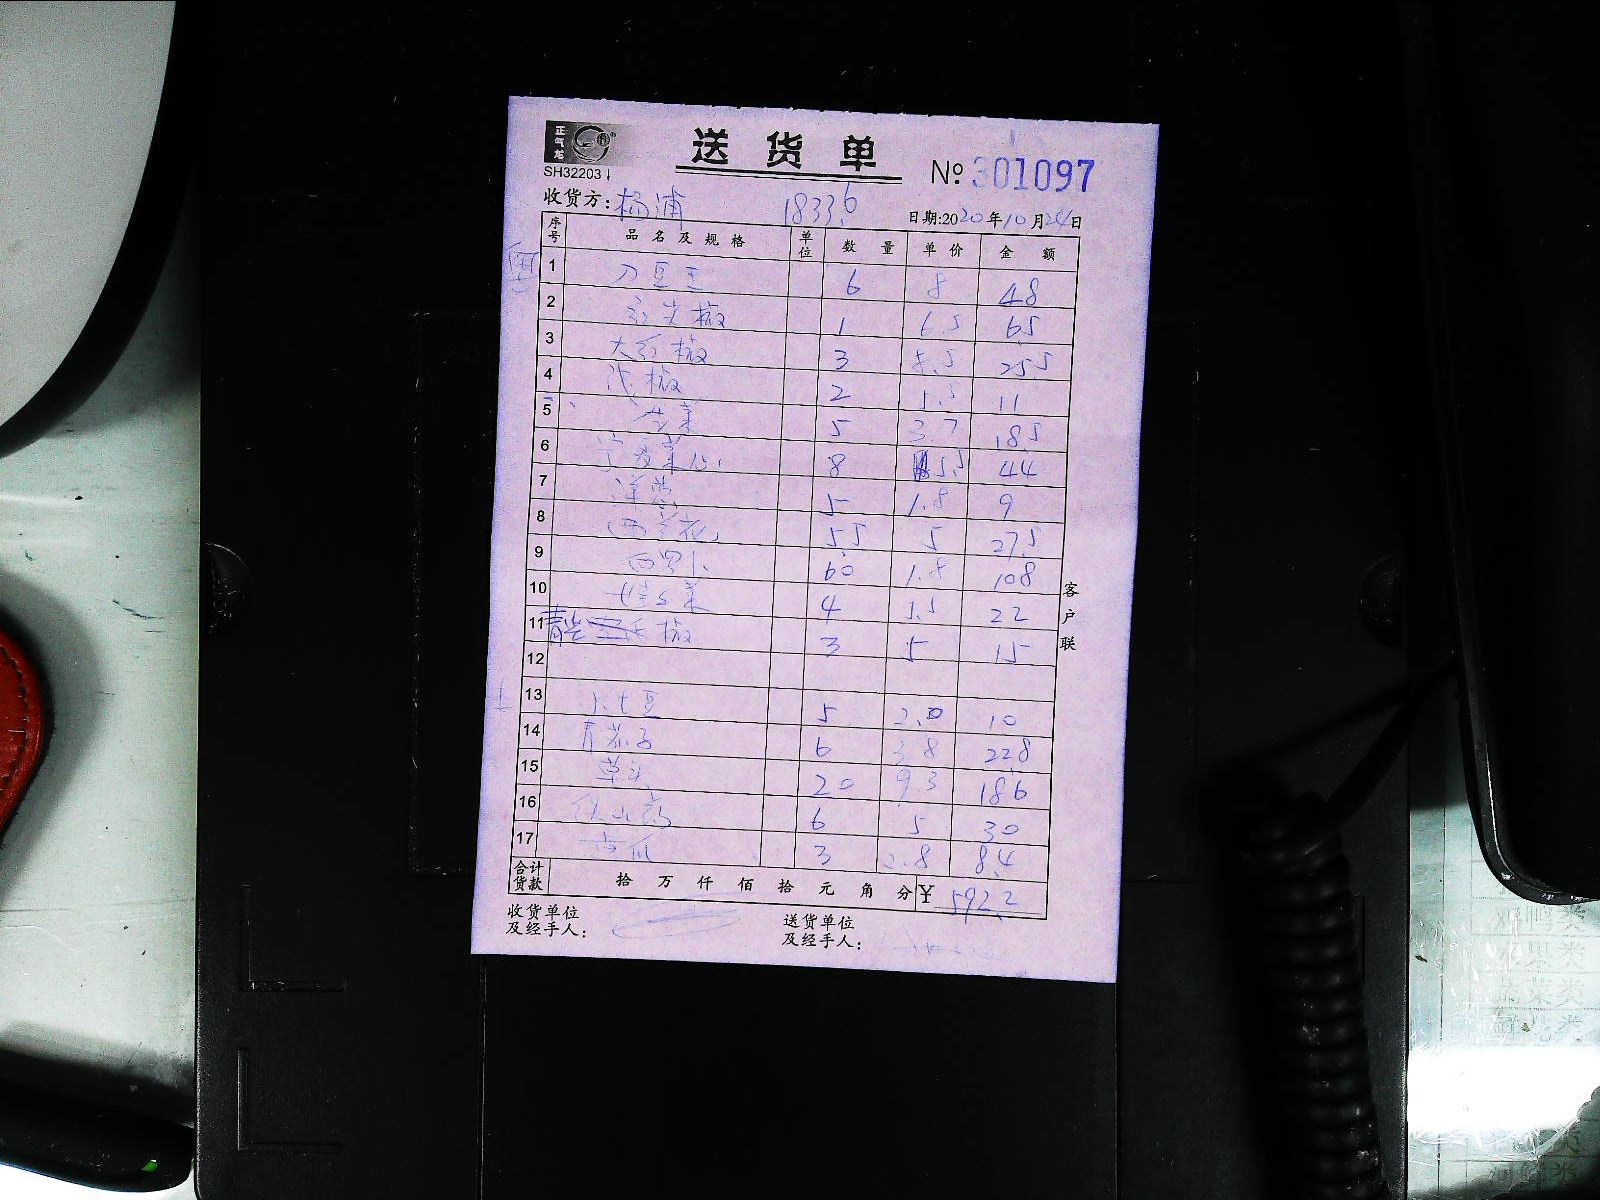 正气龙
送货单
SH32203
№ 301097
收货方: 杨浦 1833.6
日期:2020年10月24日
序号 品名及规格 单位 数量 单价 金额
1 刀豆王 6 8 48
2 1 6.5 6.5
3 大红椒 3 8.5 25.5
4 椒 2 5.5 11
5 生菜 5 3.7 18.5
6 菜心 8 5.5 44
7 洋葱 5 1.8 9
8 西兰花 5.5 5 27.5
9 白萝卜 60 1.8 108
10 娃娃菜 4 5.5 22
11 青尖椒 3 5 15
12
13 小土豆 5 2.0 10
14 茄子 6 3.8 22.8
15 草头 20 9.3 186
16 山药 6 5 30
17 瓜 3 2.8 8.4
合计货款 拾 万 仟 佰 拾 元 角 分 ¥ 592.2
收货单位及经手人:
送货单位及经手人:
客户联
果类
菜类
类
类